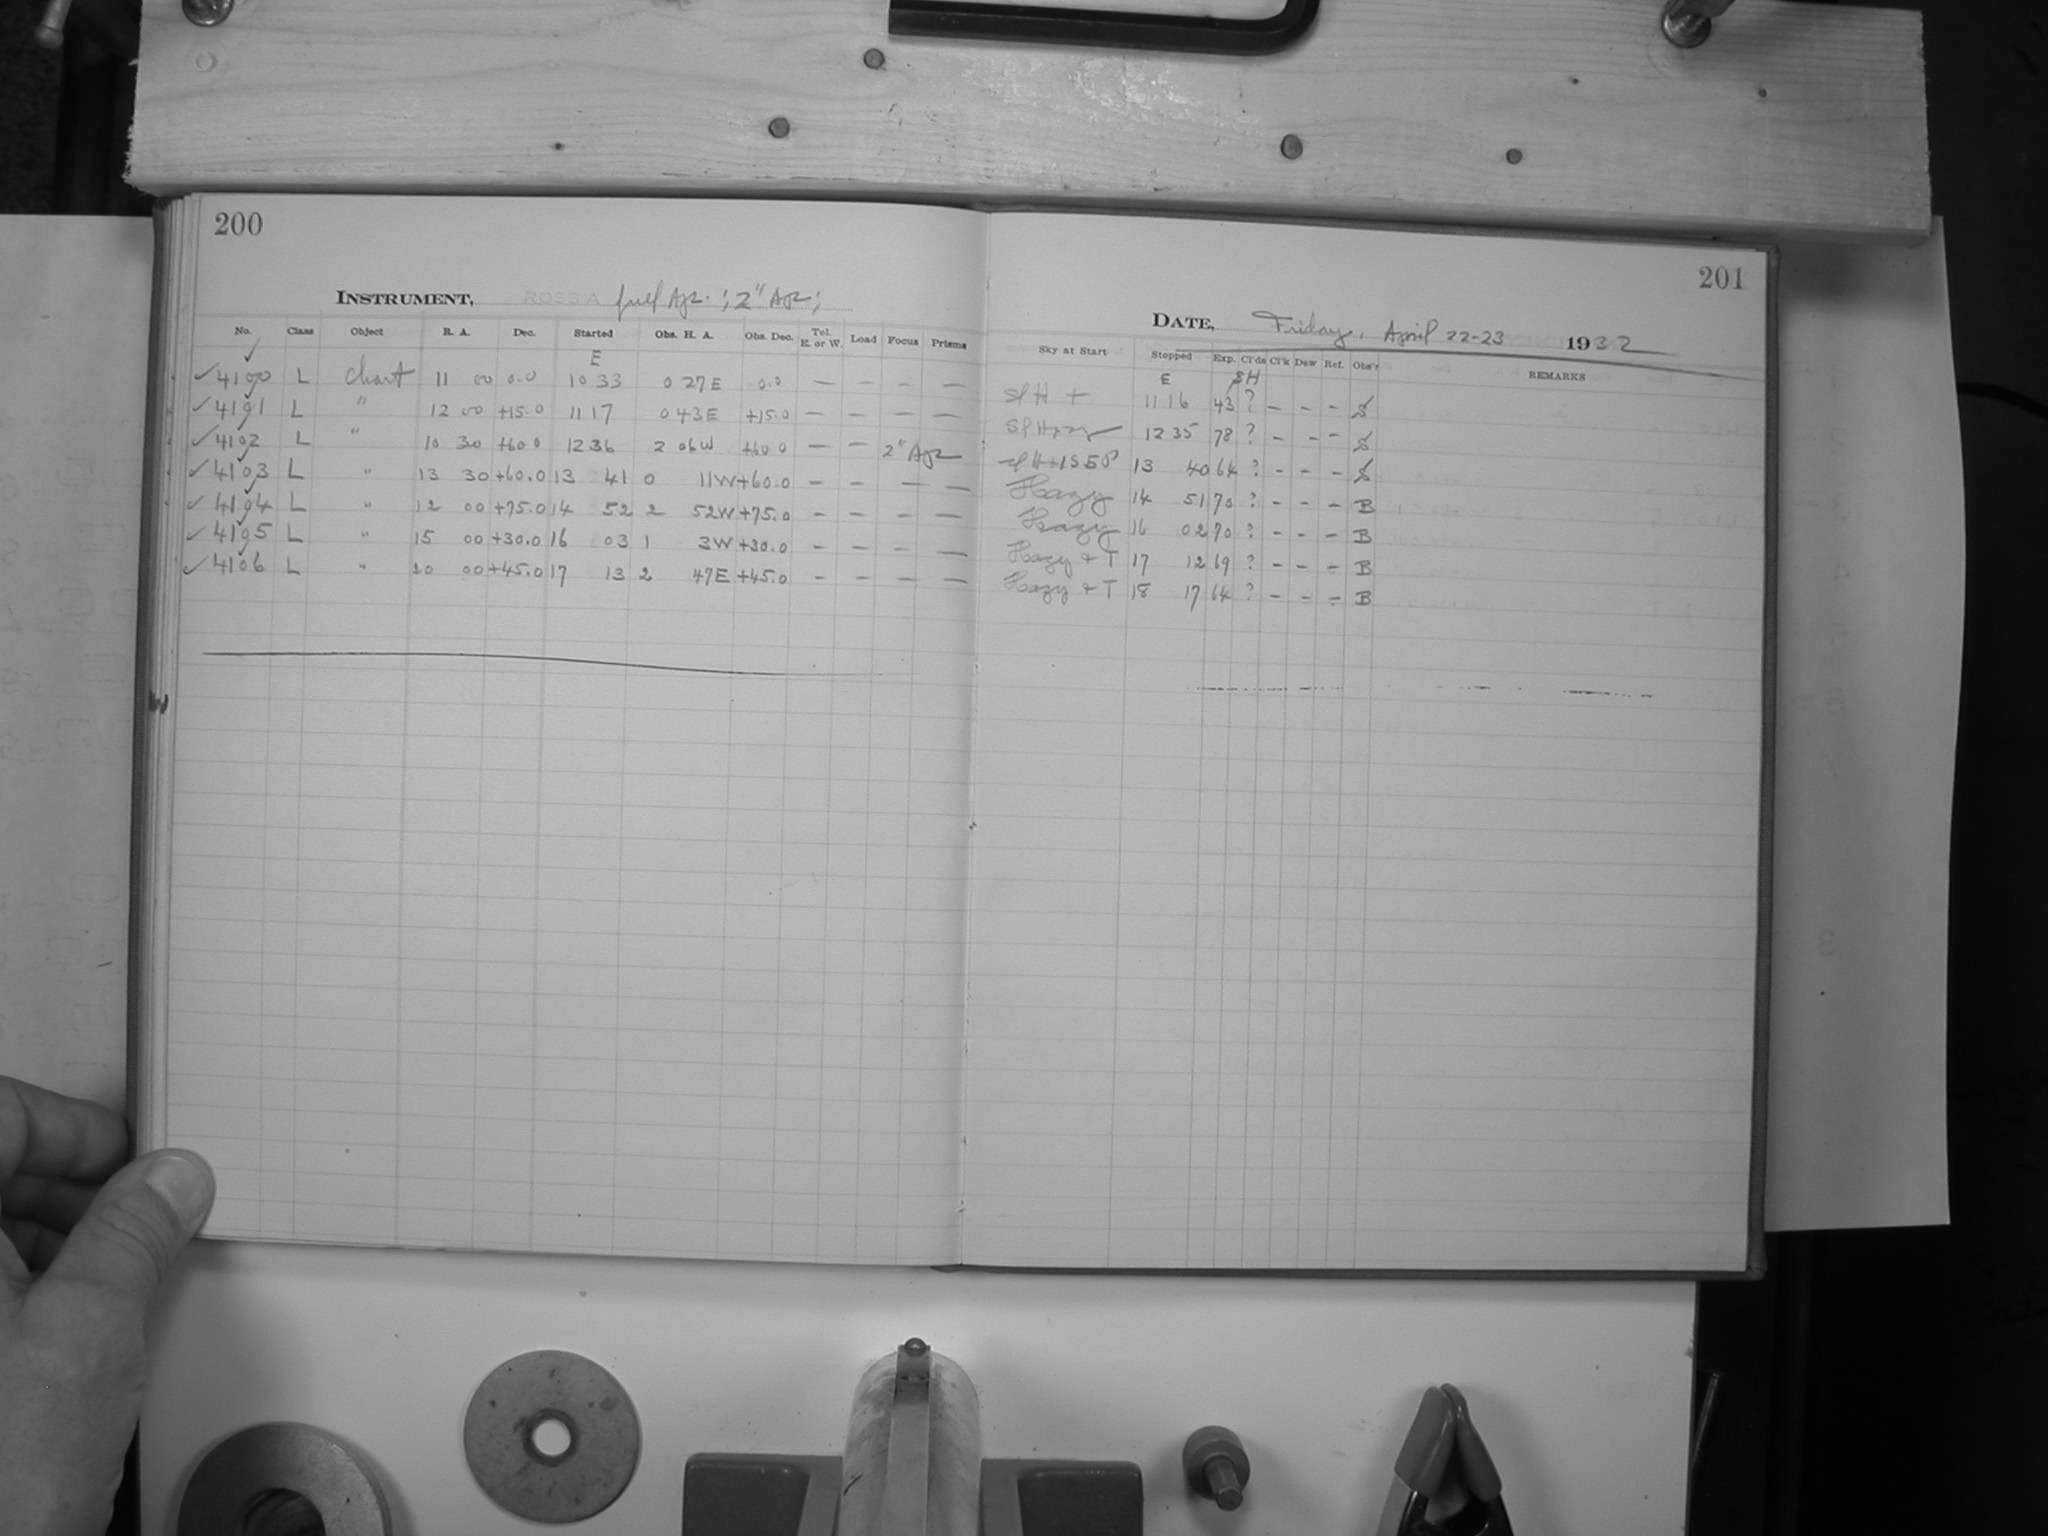 200
INSTRUMENT, ROSS A full Apr. ; 2" Apr ;
No. Class Object R. A. Dec. Started Obs. H. A. Obs. Dec. Tel. E. or W. Load Focus Prisms
E
✓ 4100 L Chart 11 00 0.0 10 33 0 27E 0.0 — — — —
✓ 4101 L " 12 00 +15.0 11 17 0 43E +15.0 — — — —
✓ 4102 L " 10 30 +60.0 12 36 2 06W +60.0 — — 2" Apr
✓ 4103 L " 13 30 +60.0 13 41 0 11W +60.0 - - — —
✓ 4104 L " 12 00 +75.0 14 52 2 52W +75.0 - - - —
✓ 4105 L " 15 00 +30.0 16 03 1 3W +30.0 - - - —
✓ 4106 L " 20 00 +45.0 17 13 2 47E +45.0 - - - —
201
DATE, Friday, April 22-23 1932
Sky at Start Stopped Exp. Cl'ds Cl'k Dew Ref. Obs'r REMARKS
E SH
Sl H + 11 16 43 ? - - - S
Sl Hazy 12 35 78 ? - - - S
13 40 64 ? - - - S
Hazy 14 51 70 ? - - - B
Hazy 16 02 70 ? - - - B
Hazy + T 17 12 69 ? - - - B
Hazy + T 18 17 64 ? - - - B